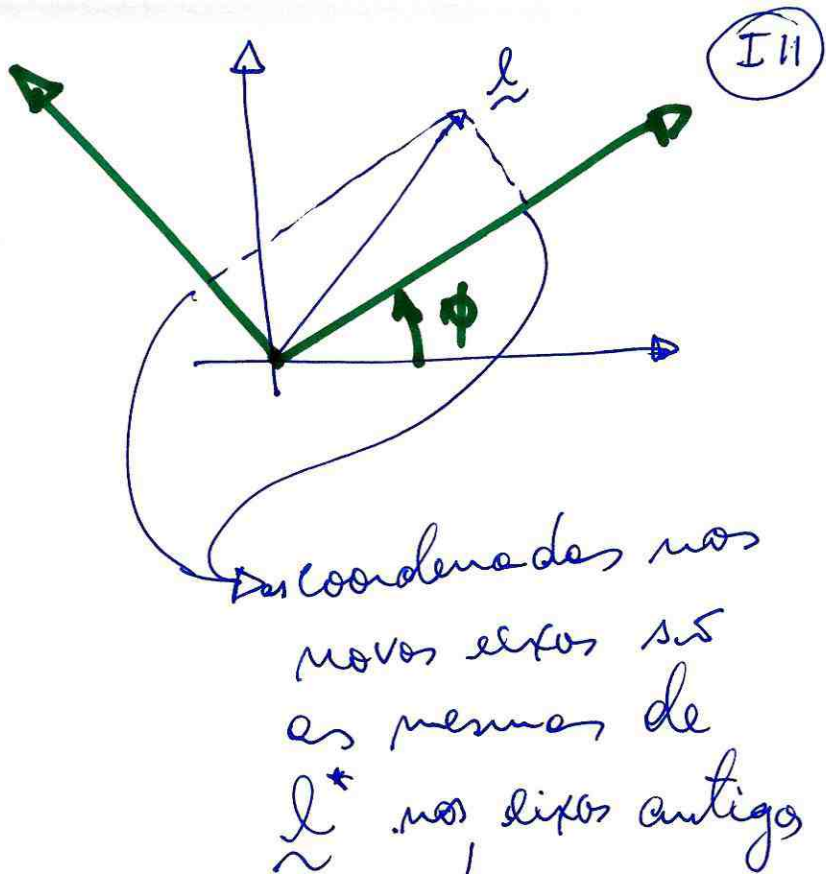 I11
l
ϕ
as coordenadas nos
novos eixos são
as mesmas de
l* nos eixos antigos